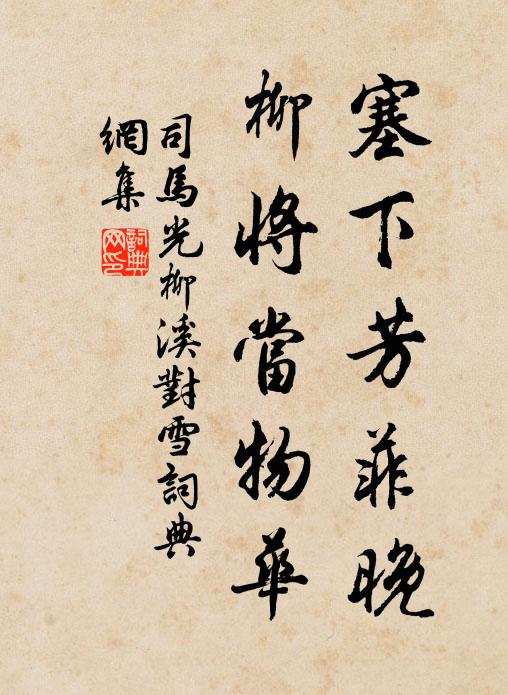 塞下芳菲晚
柳將當物華
司馬光柳溪對雪詞典
網集
詞典
网印